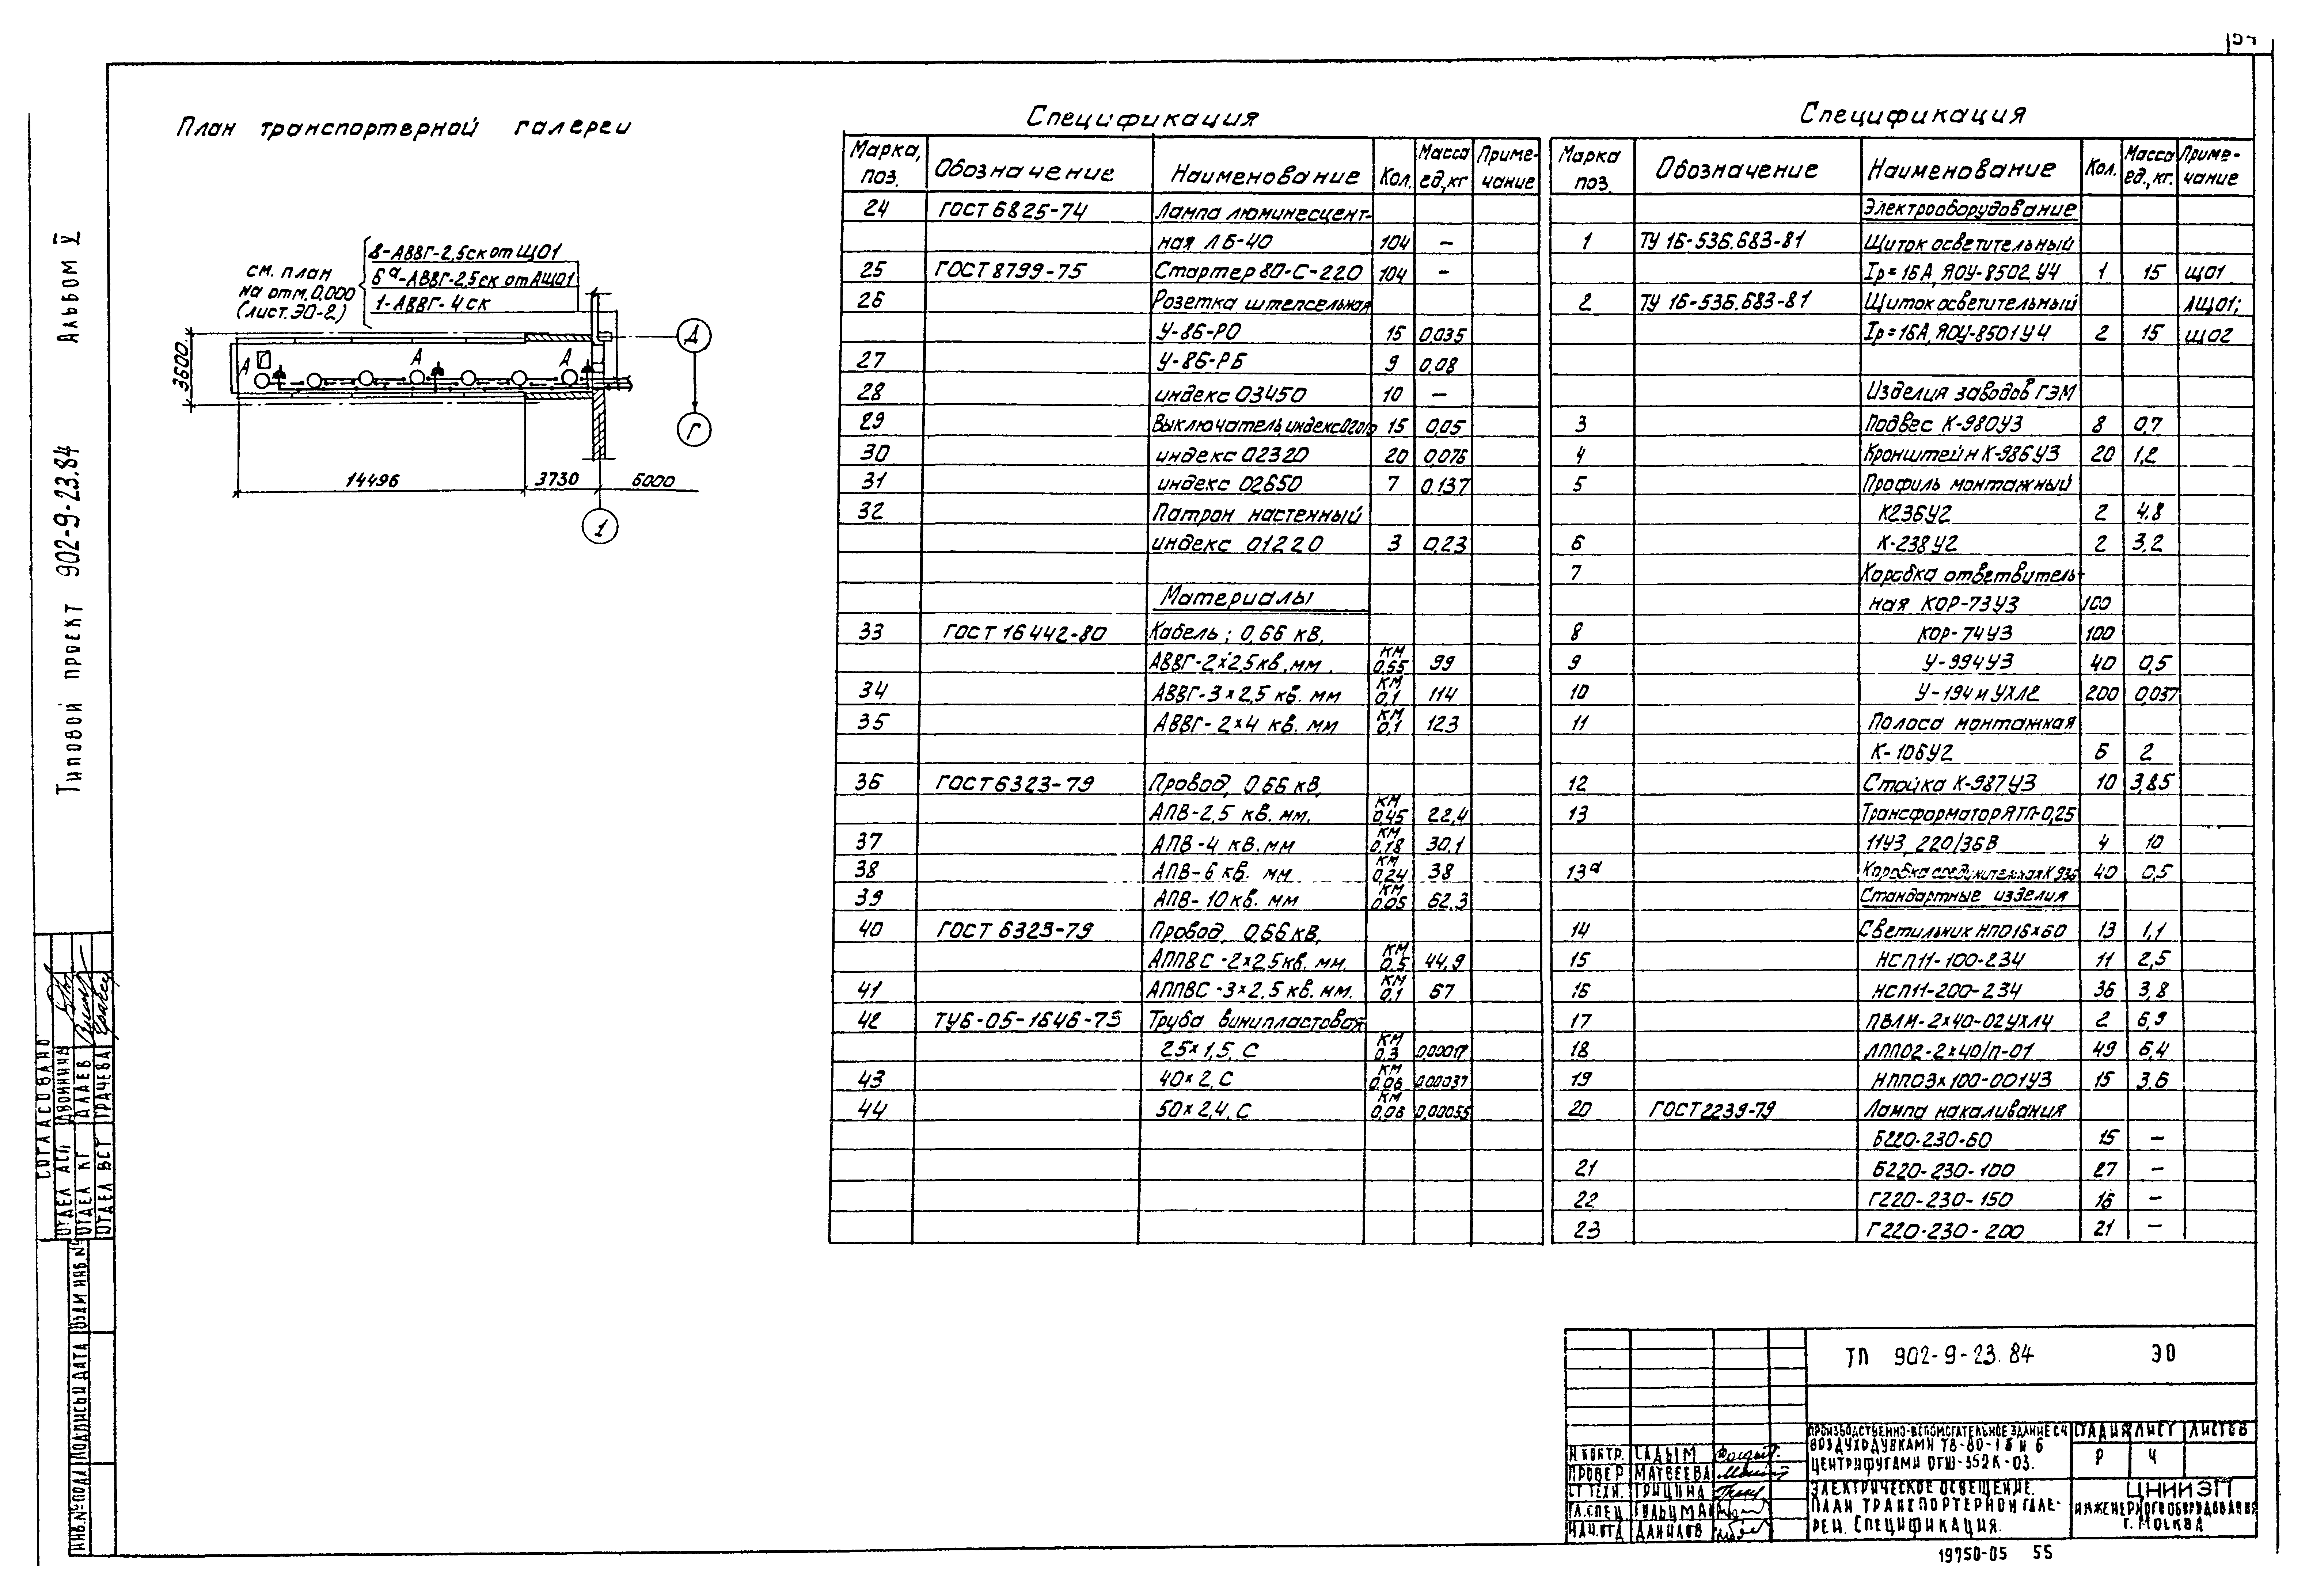 54
План транспортерной галереи
8-АВВГ-2,5ск от ЩО1
6а-АВВГ-2,5ск от АЩО1
1-АВВГ-4ск
см. план
на отм. 0.000
(лист. ЭО-2)
А А А
3600
14496 3730 6000
Д
Г
1
Альбом V
Типовой проект 902-9-23.84
Спецификация
Марка, поз. Обозначение Наименование Кол. Масса ед,кг Примечание
24 ГОСТ 6825-74 Лампа люминесцент-
ная ЛБ-40 104 —
25 ГОСТ 8799-75 Стартер 80-С-220 104 —
26 Розетка штепсельная
У-86-РО 15 0,035
27 У-86-РБ 9 0,08
28 индекс 03450 10 —
29 Выключатель, индекс 15 0,05
30 индекс 02320 20 0,076
31 индекс 02650 7 0,137
32 Патрон настенный
индекс 01220 3 0,23
Материалы
33 ГОСТ 16442-80 Кабель; 0,66 кВ,
АВВГ-2×2,5кв.мм. км 0,55 99
34 АВВГ-3×2,5 кв. мм км 0,1 114
35 АВВГ-2×4 кв. мм км 0,1 123
36 ГОСТ 6323-79 Провод, 0,66 кВ,
АПВ-2,5 кв. мм. км 0,45 22,4
37 АПВ-4 кв. мм км 0,18 30,1
38 АПВ-6 кв. мм км 0,24 38
39 АПВ-10 кв. мм км 0,05 62,3
40 ГОСТ 6323-79 Провод, 0,66 кВ,
АППВС-2×2,5кв. мм. км 0,5 44,9
41 АППВС-3×2,5 кв. мм. км 0,1 67
42 ТУ6-05-1646-73 Труба винипластовая
25×1,5, С км 0,3 0,00017
43 40×2, С км 0,06 0,00037
44 50×2,4, С км 0,06 0,00055
Спецификация
Марка поз. Обозначение Наименование Кол. Масса ед., кг. Примечание
Электрооборудование
1 ТУ 16-536.683-81 Щиток осветительный
Iр=16А, ЯОУ-8502 У4 1 15 ЩО1
2 ТУ 16-536.683-81 Щиток осветительный АЩО1;
Iр=16А, ЯОУ-8501У4 2 15 ЩО2
Изделия заводов ГЭМ
3 Подвес К-980У3 8 0,7
4 Кронштейн К-986У3 20 1,2
5 Профиль монтажный
К236У2 2 4,8
6 К-238У2 2 3,2
7 Коробка ответвитель-
ная КОР-73У3 100
8 КОР-74У3 100
9 У-994У3 40 0,5
10 У-194м УХЛ2 200 0,037
11 Полоса монтажная
К-106У2 6 2
12 Стойка К-987У3 10 3,85
13 Трансформатор ЯТП-0,25
11У3, 220/36В 4 10
13а Коробка соединительная К 936 40 0,5
Стандартные изделия
14 Светильник НПО16×60 13 1,1
15 НСП11-100-234 11 2,5
16 НСП11-200-234 36 3,8
17 ПВЛМ-2×40-02УХЛ4 2 6,9
18 ЛПП02-2×40/П-01 49 6,4
19 НПП03×100-001У3 15 3,6
20 ГОСТ 2239-79 Лампа накаливания
Б220-230-60 15 —
21 Б220-230-100 27 —
22 Г220-230-150 16 —
23 Г220-230-200 21 —
СОГЛАСОВАНО
ОТДЕЛ АСП ДВОЙНИНА
ОТДЕЛ КГ ДАЛАЕВ
ОТДЕЛ ВСТ ГРАЧЕВА
ИНВ.№ ПОДЛ ПОДПИСЬ И ДАТА ВЗАМ ИНВ.№
ТП 902-9-23.84 ЭО
Производственно-вспомогательное здание с 4
воздуходувками ТВ-80-1,6 и 6
центрифугами ОГШ-352К-03.
СТАДИЯ ЛИСТ ЛИСТОВ
Р 4
Электрическое освещение.
План транспортерной гале-
реи. Спецификация.
ЦНИИЭП
инженерного оборудования
г. Москва
Н.КОНТР. САДЫМ
ПРОВЕР МАТВЕЕВА
СТ ТЕХН. ГРИЦИНА
ГЛ.СПЕЦ ГОЛЬЦМАН
НАЧ.ОТД ДАНИЛОВ
19750-05 55